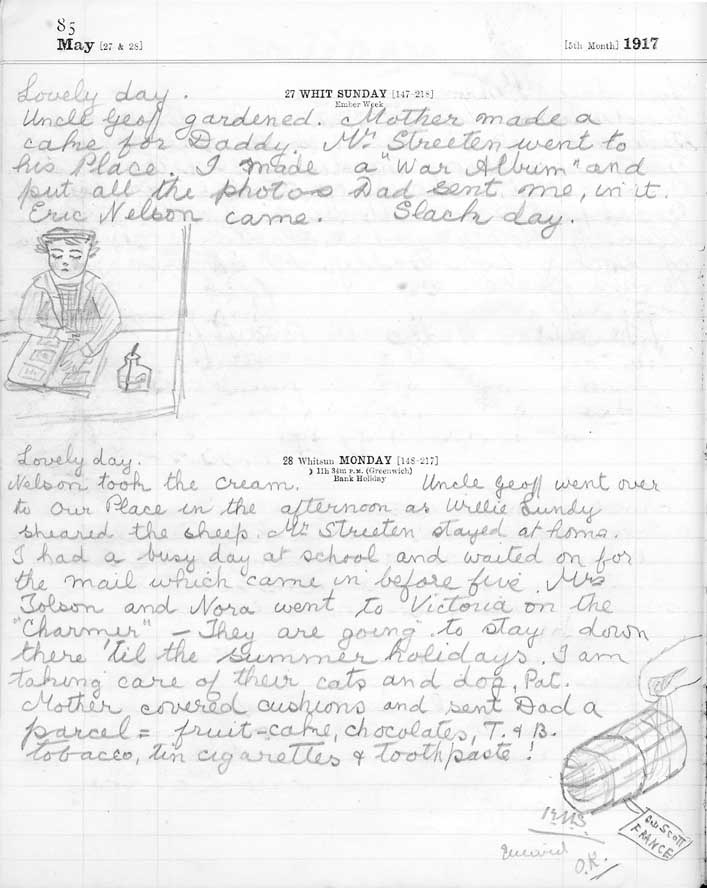 85
May [27 & 28]
[5th Month] 1917
27 WHIT SUNDAY [147-218]
Ember Week
Lovely day.
Uncle Geoff gardened. Mother made a
cake for Daddy. Mr Streeten went to
his Place. I made a "War Album" and
put all the photos Dad sent me, in it.
Eric Nelson came. Slack day.
28 Whitsun MONDAY [148-217]
☽ 11h 34m P.M. (Greenwich)
Bank Holiday
Lovely day.
Nelson took the cream. Uncle Geoff went over
to Our Place in the afternoon as Willie Lundy
sheared the sheep. Mr Streeten stayed at home.
I had a busy day at school and waited on for
the mail which came in before five. Mrs
Tolson and Nora went to Victoria on the
"Charmer" – They are going to stay down
there 'til the summer holidays. I am
taking care of their cats and dog, Pat.
Mother covered cushions and sent Dad a
parcel = fruit-cake, chocolates, T. & B.
tobacco, tin cigarettes & toothpaste!
Scott
FRANCE
O.K.